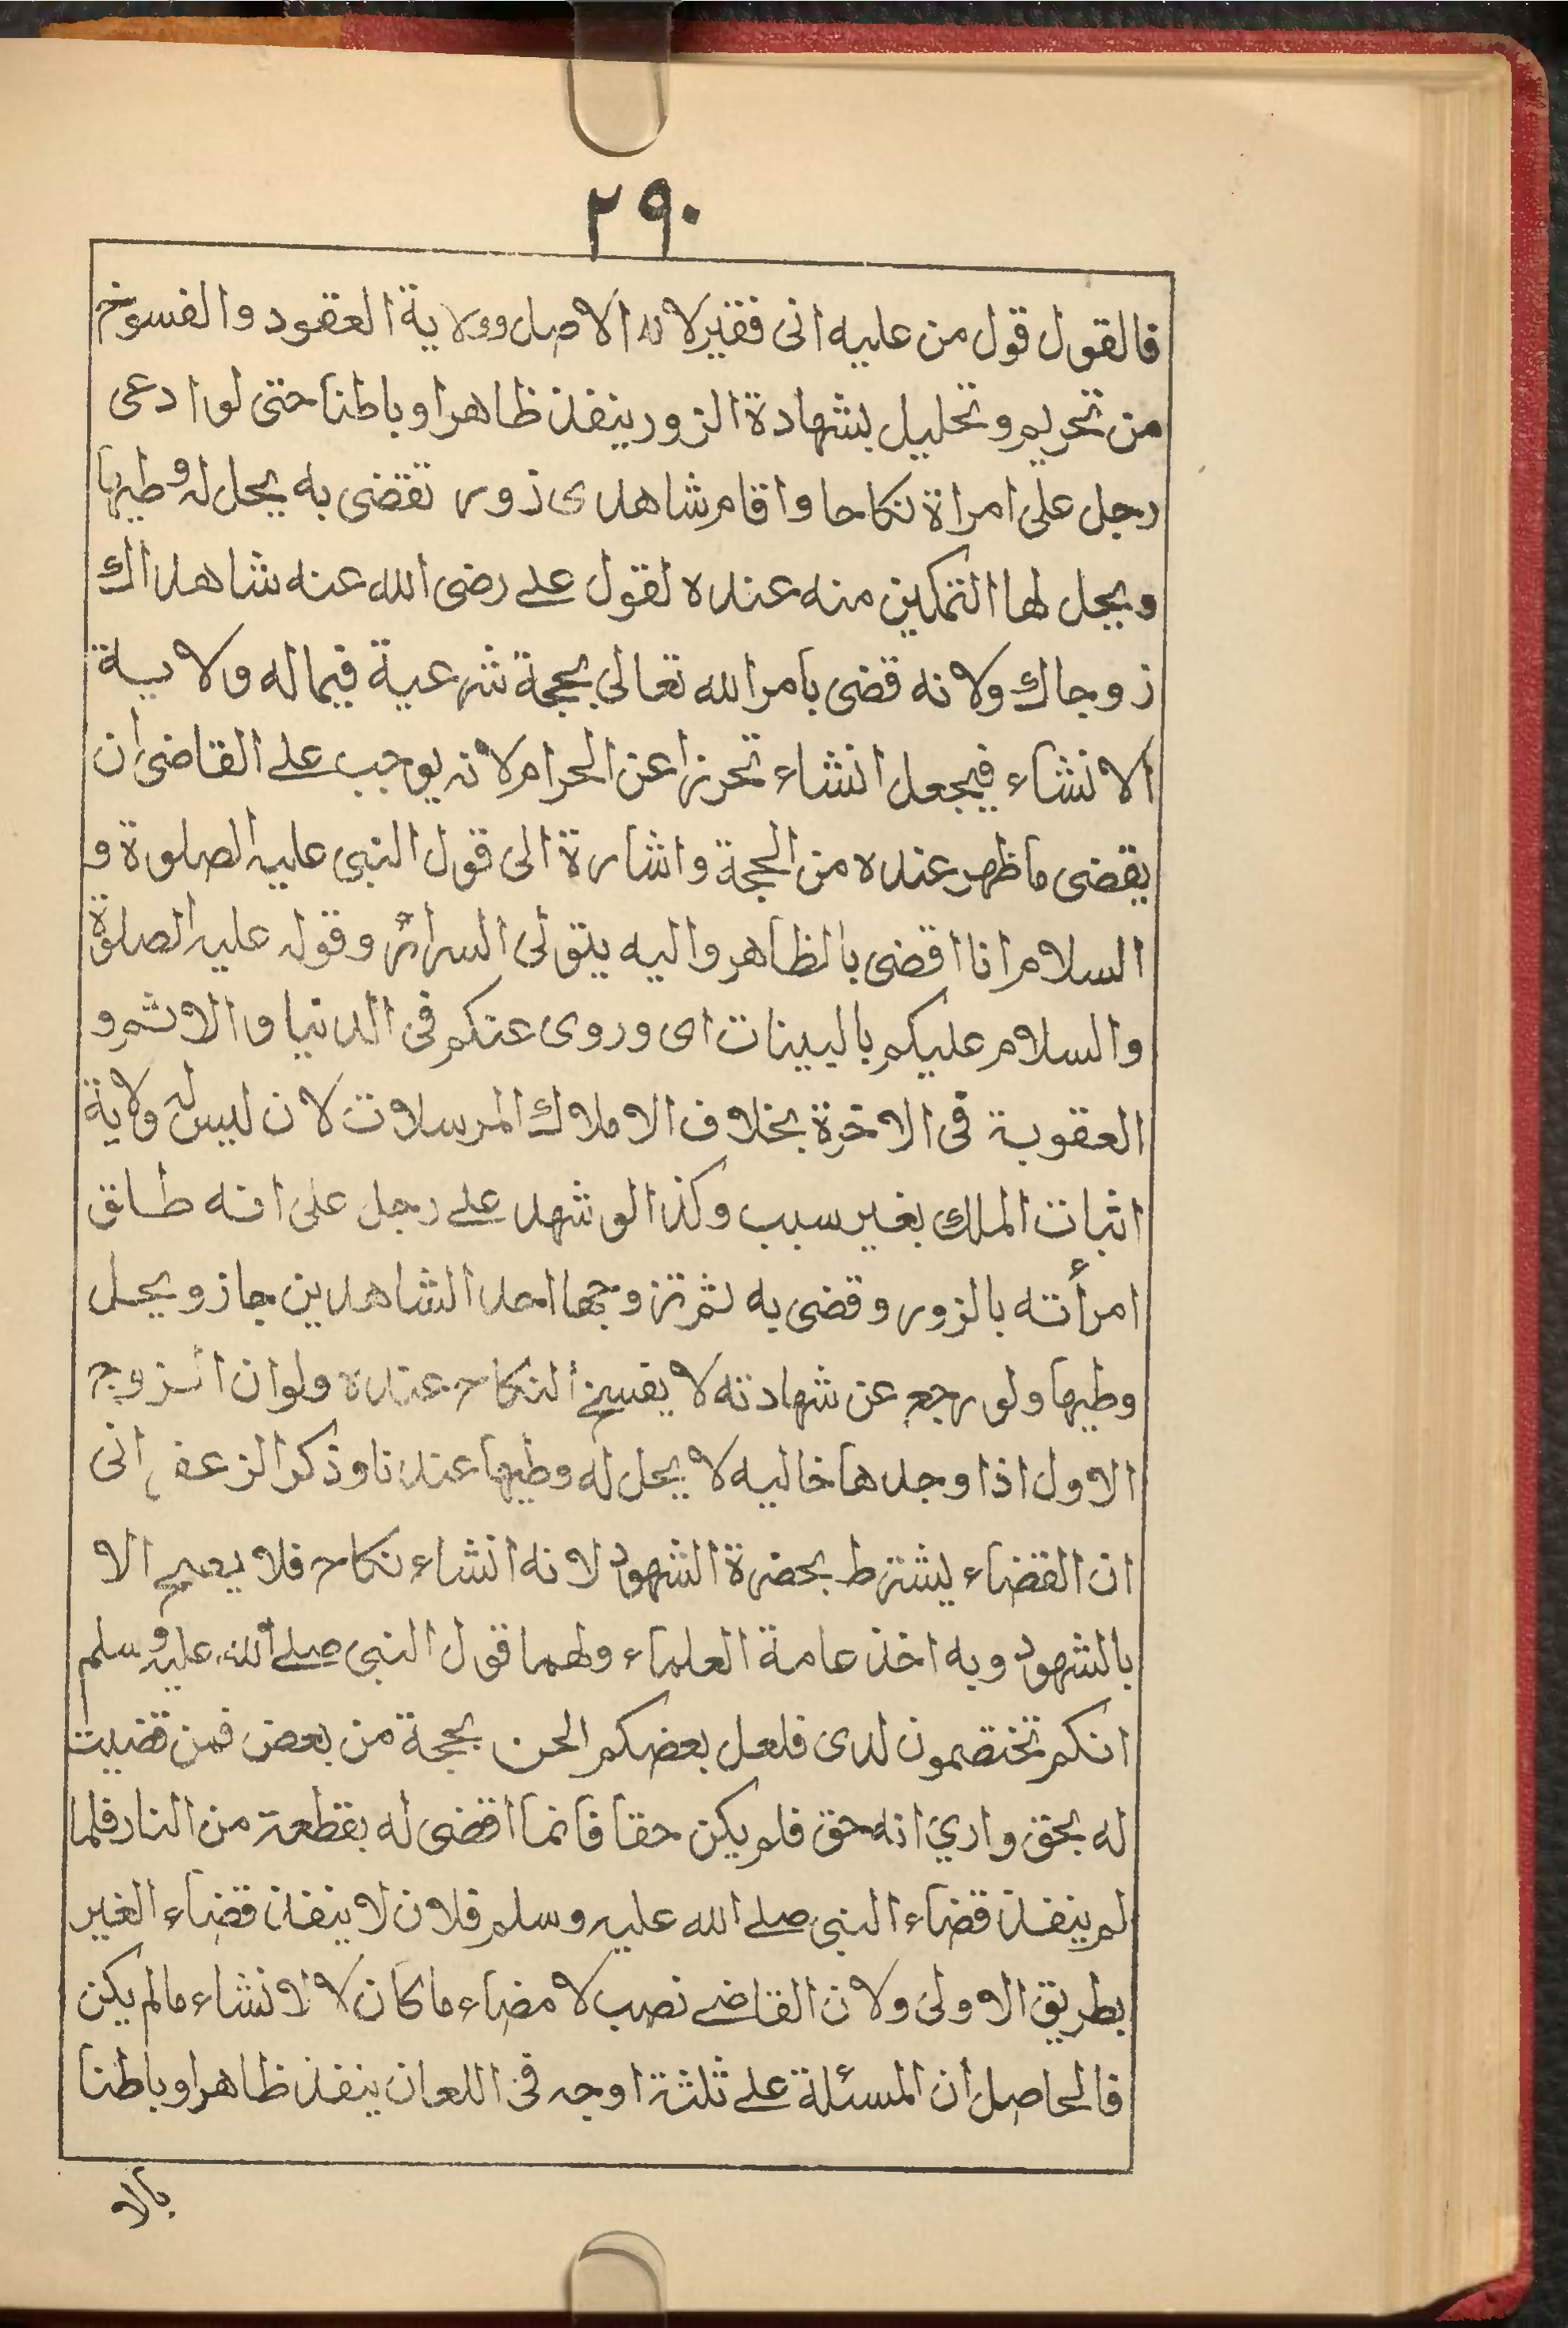 ٢٩٠
فالقول قول من عليه انى فقير لانه الاصل وولاية العقود والفسوخ
من تحريم وتحليل بشهادة الزور ينفذ ظاهرا وباطنا حتى لو ادعى
رجل على امراة نكاحا واقام شاهدى زور تقضى به يحل له وطيها
ويحل لها التمكين منه عنده لقول على رضى الله عنه شاهداك
زوجاك ولانه قضى بامر الله تعالى بحجة شرعية فيماله ولاية
الانشاء فيجعل انشاء تحرزا عن الحرام لانه يوجب على القاضى ان
يقضى ماظهر عنده من الحجة واشارة الى قول النبى عليه الصلوة و
السلام انا اقضى بالظاهر واليه يتولى السرائر وقوله عليه الصلوة
والسلام عليكم بالبينات اى وروى عنكم فى الدنيا والاثم و
العقوبة فى الاخرة بخلاف الاملاك المرسلات لان ليس له ولاية
اثبات الملك بغير سبب وكذا لو شهد على رجل على انه طلق
امرأته بالزور وقضى به ثم تزوجها احد الشاهدين جاز ويحل
وطيها ولو رجع عن شهادته لا يفسخ النكاح عنده ولو ان الزوج
الاول اذا وجدها خاليه لا يحل له وطيها عندنا وذكر الزعفرانى
ان القضاء يشترط بحضرة الشهود لانه انشاء نكاح فلا يصح الا
بالشهود وبه اخذ عامة العلماء ولهما قول النبى صلى الله عليه وسلم
انكم تختصمون لدى فلعل بعضكم الحن بحجة من بعض فمن قضيت
له بحق وارى انه حق فلم يكن حقا فانما اقضى له بقطعة من النار فلما
لم ينفذ قضاء النبى صلى الله عليه وسلم فلان لا ينفذ قضاء الغير
بطريق الاولى ولان القاضى نصب لامضاء ما كان لا لانشاء مالم يكن
فالحاصل ان المسئلة على ثلثة اوجه فى اللعان ينفذ ظاهرا وباطنا
بالا